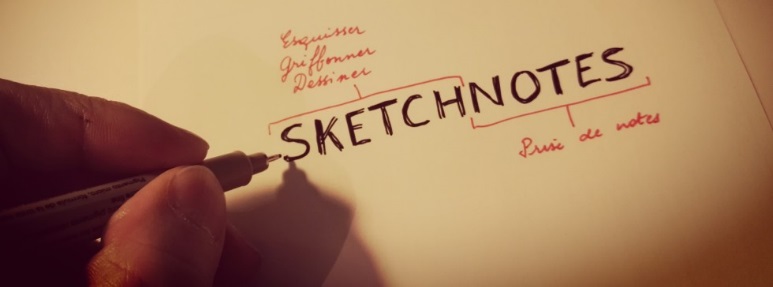 Esquisser
Griffonner
Dessiner
SKETCHNOTES
Prise de notes